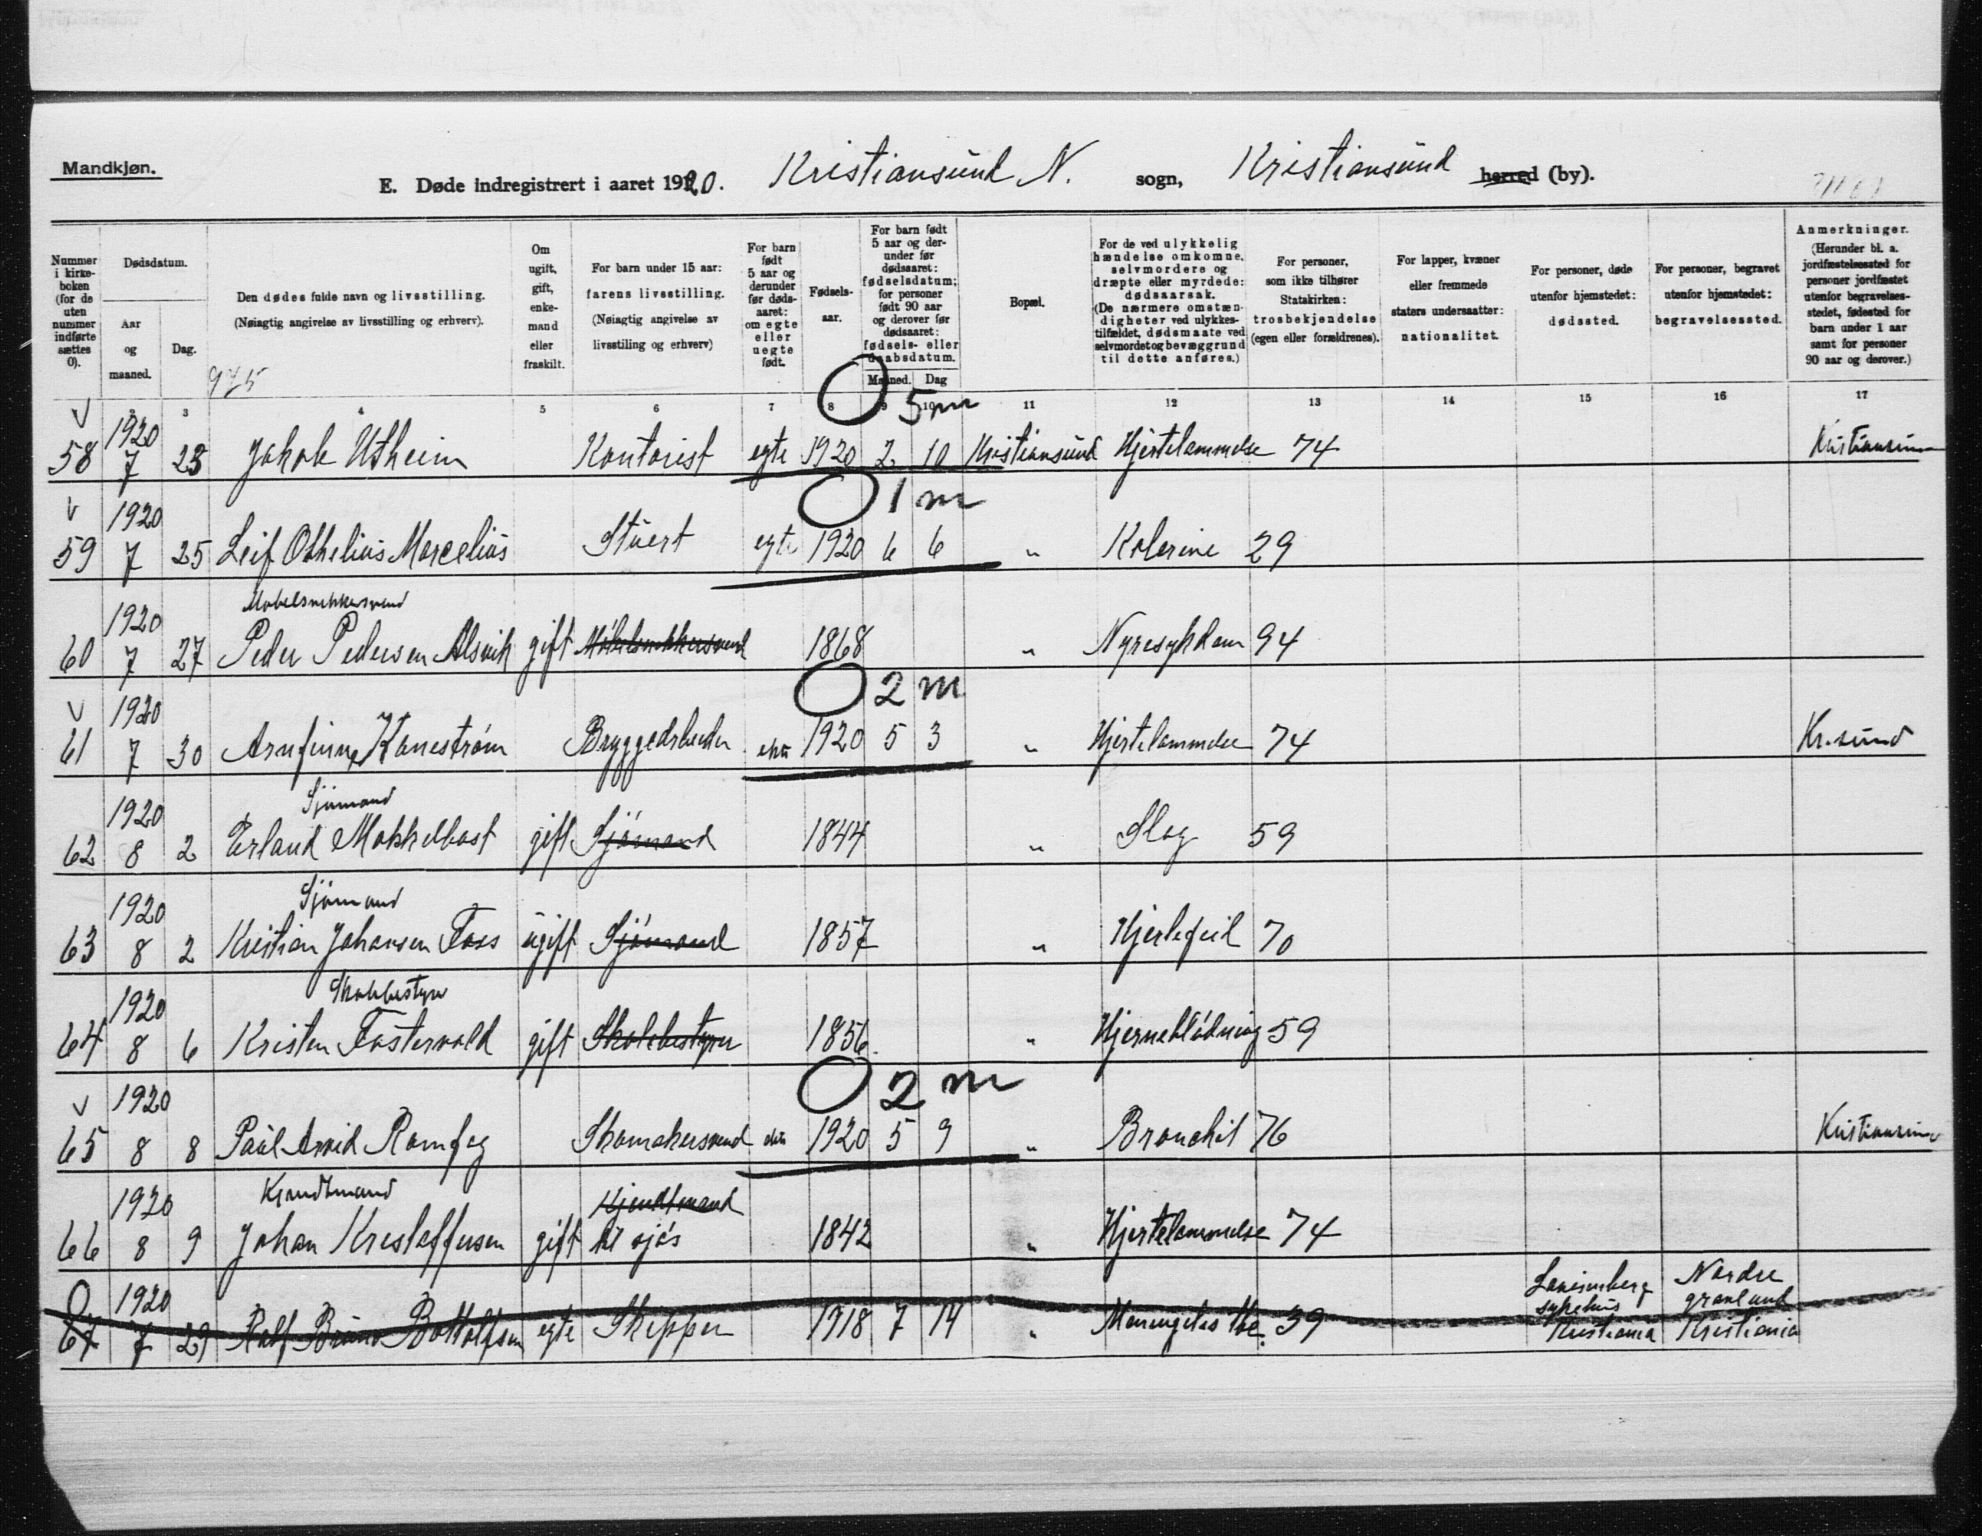 Mandkjøn.
E. Døde indregistrert i aaret 1920. Kristiansund N. sogn, Kristiansund herred (by).
Nummer i kirkeboken (for de uten nummer indførte sættes 0).
Dødsdatum.
Aar og maaned.
Dag.
Den dødes fulde navn og livsstilling.
(Nøiagtig angivelse av livsstilling og erhverv).
975
Om ugift, gift, enkemand eller fraskilt.
For barn under 15 aar: farens livsstilling.
(Nøiagtig angivelse av livsstiling og erhverv)
For barn født 5 aar og derunder før dødsaaret: om egte eller uegte født.
Fødselsaar.
For barn født 5 aar og derunder før dødsaaret: fødselsdatum; for personer født 90 aar og derover før dødsaaret: fødsels- eller daabsdatum.
Maaned. Dag
Bopæl.
For de ved ulykkelig hændelse omkomne, selvmordere og dræpte eller myrdede: dødsaarsak.
(De nærmere omstændigheter ved ulykkestilfældet, dødsmaate ved selvmordet og bevæggrund til dette anføres.)
For personer, som ikke tilhører Statskirken: trosbekjendelse (egen eller forældrenes).
For lapper, kvæner eller fremmede staters undersaatter: nationalitet.
For personer, døde utenfor hjemstedet: dødssted.
For personer, begravet utenfor hjemstedet: begravelsessted.
Anmerkninger.
(Herunder bl. a. jordfæstelsessted for personer jordfæstet utenfor begravelsesstedet, fødested for barn under 1 aar samt for personer 90 aar og derover.)
3 4 5 6 7 8 9 10 11 12 13 14 15 16 17
5 m
58 1920 7 23 Jakob Utheim Kontorist egte 1920 2 10 Kristiansund Hjertelammelse 74 Kristiansun
1 m
59 1920 7 25 Leif Othelius Marcelius Stuert egte 1920 6 6 " Kolerine 29
Møbelsnekkersvend
60 1920 7 27 Peder Pedersen Alsvik gift Møbelsnekkersvend 1868 " Nyresykdom 94
2 m
61 1920 7 30 Arnfinn Kanestrøm Bryggearbeider 1920 5 3 " Hjertelammelse 74 Kr.sund
Sjømand
62 1920 8 2 Erland Mokkelbost gift Sjømand 1844 " Slag 59
Sjømand
63 1920 8 2 Kristian Johansen Foss ugift Sjømand 1857 " Hjertefeil 70
Skolebestyrer
64 1920 8 6 Kristen Fostervold gift Skolebestyrer 1856 " Hjerneblødning 59
2 m
65 1920 8 8 Paul Arvid Romfog Skomakersvend 1920 5 9 " Bronchit 76 Kristiansun
Kjendtmand Kjendtmand
66 1920 8 9 Johan Kristoffersen gift til sjøs 1842 " Hjertelammelse 74
67 1920 7 29 Rolf Bruno Bottolfsen egte Skipper 1918 7 14 " Meningitis tbc. 39 sykehus Kristiania Nordre gravlund Kristiania